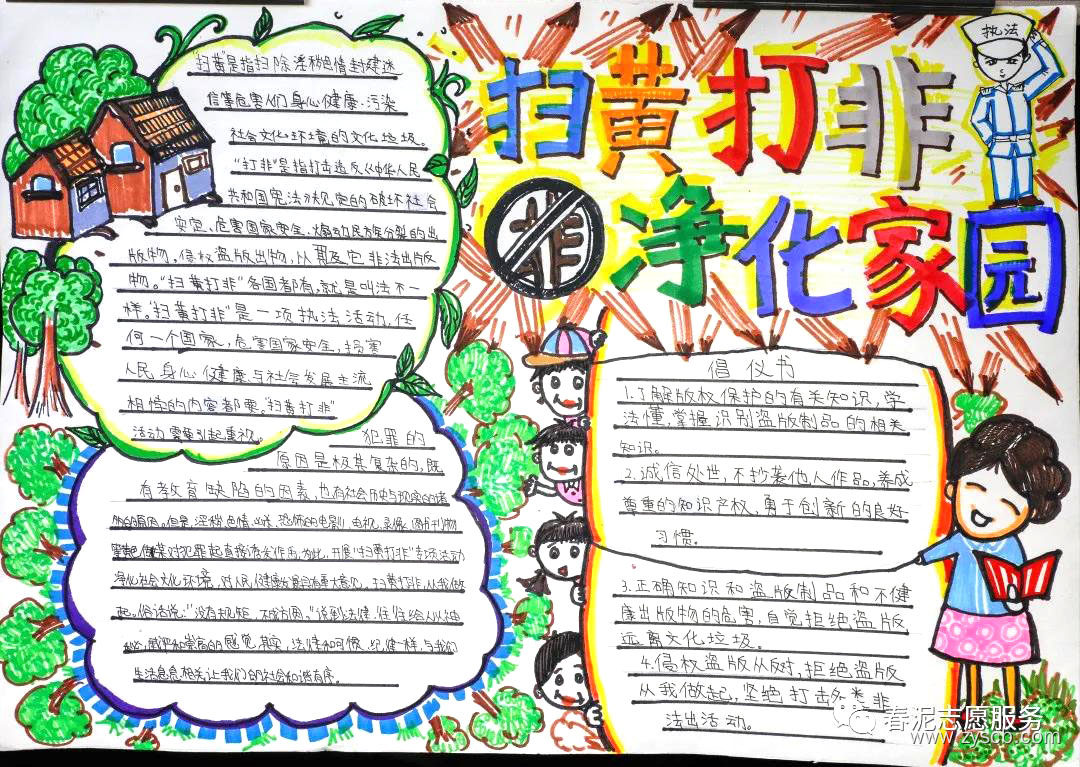 扫黄打非
非
净化家园
执法
"扫黄"是指扫除淫秽色情封建迷
信等危害人们身心健康、污染
社会文化环境的文化垃圾。
"打非"是指打击违反《中华人民
共和国宪法》规定的破坏社会
安定、危害国家安全、煽动民族分裂的出
版物,侵权盗版出版物,以及其它非法出版
物。"扫黄打非"各国都有,就是叫法不一
样。"扫黄打非"是一项执法活动,任
何一个国家,危害国家安全,损害
人民身心健康与社会发展主流
相悖的内容都要。"扫黄打非"
活动需要引起重视。
犯罪的
原因是极其复杂的,既
有教育缺陷的因素,也有社会历史与现实的诸
但是,淫秽色情、凶杀、恐怖的电影、电视、录像、图书刊物
对犯罪起直接作用,为此,开展"扫黄打非"专项活动
净化社会文化环境,对人民健康
扫黄打非,从我做
起。俗话说:"没有规矩,不成方圆。"说到法律,往往给人以神
秘、威严和崇高的感觉,其实,法律和可微、纪律一样,与我们
生活息息相关,让我们的社会和谐有序。
倡仪书
1.了解版权保护的有关知识,学
法懂,掌握识别盗版制品的相关
知识。
2.诚信处世,不抄袭他人作品,养成
尊重的知识产权,勇于创新的良好
习惯。
3.正确知识和盗版制品和不健
康出版物的危害,自觉拒绝盗版
远离文化垃圾。
4.侵权盗版从对,拒绝盗版
从我做起,坚绝打击各类非
法出活动。
春泥志愿服务
www.zyscb.com